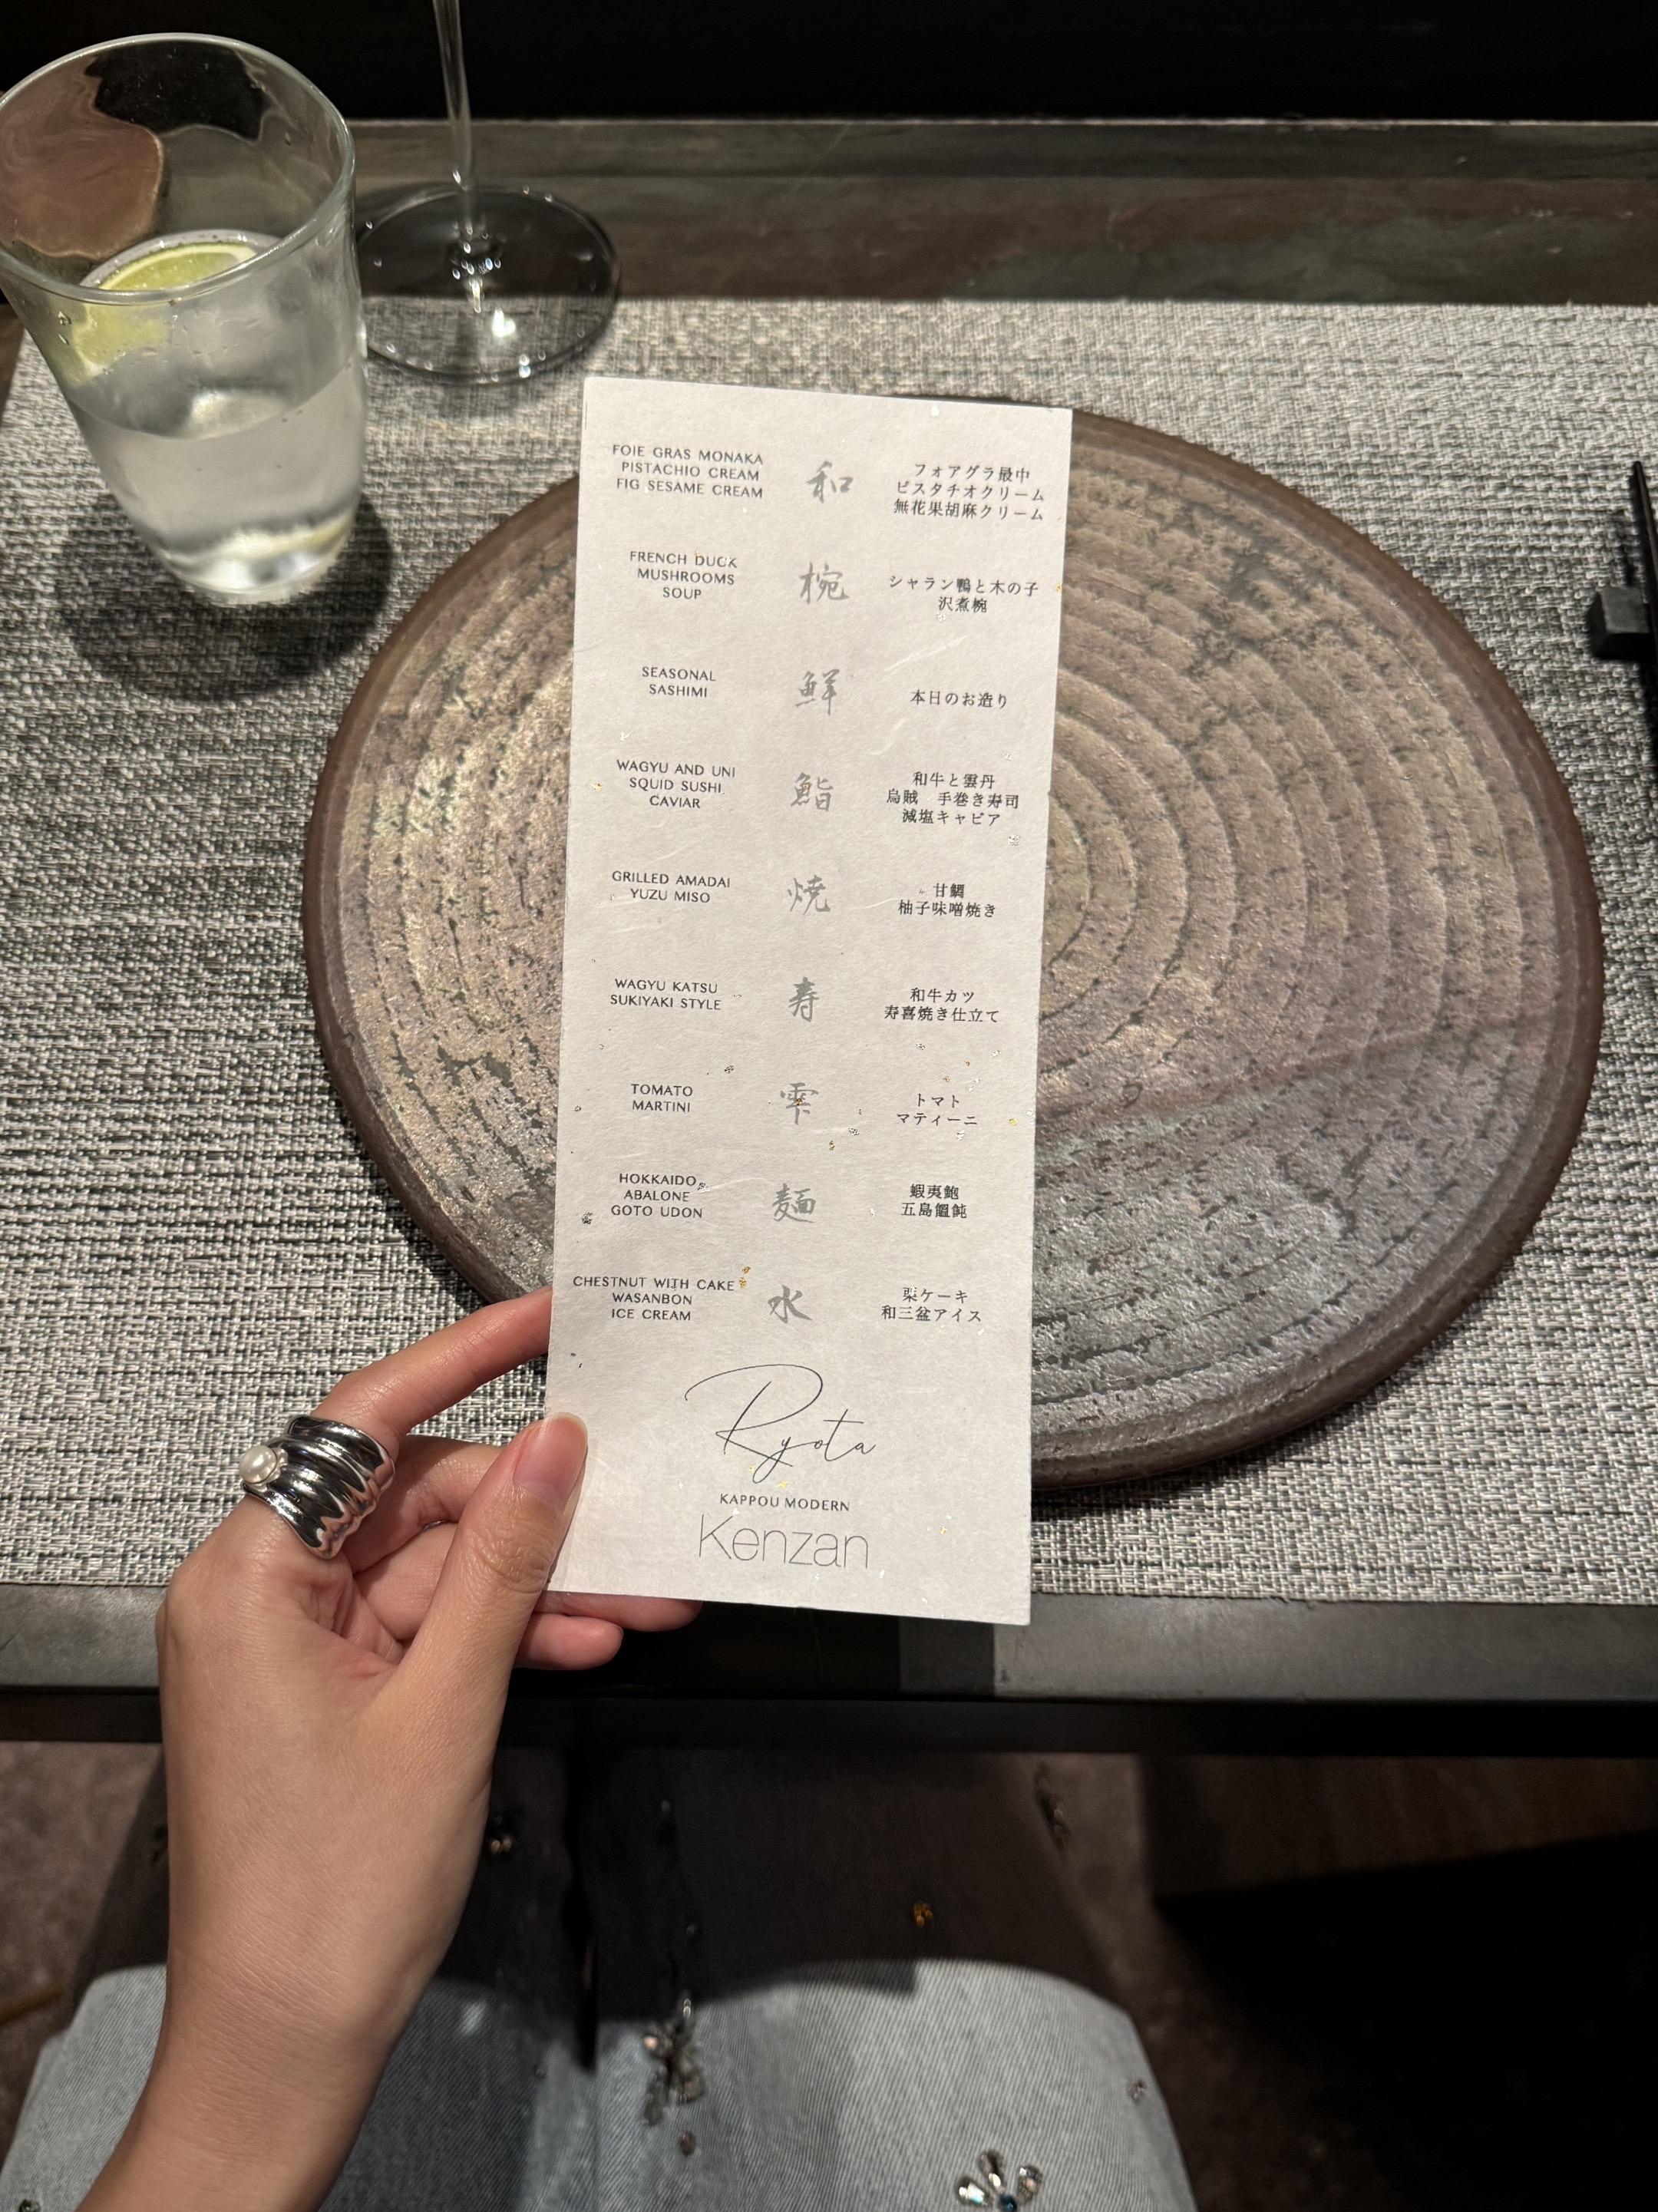 FOIE GRAS MONAKA
PISTACHIO CREAM
FIG SESAME CREAM
和
フォアグラ最中
ピスタチオクリーム
無花果胡麻クリーム
FRENCH DUCK
MUSHROOMS
SOUP
椀
シャラン鴨と木の子
沢煮椀
SEASONAL
SASHIMI
鮮
本日のお造り
WAGYU AND UNI
SQUID SUSHI
CAVIAR
鮨
和牛と雲丹
烏賊　手巻き寿司
減塩キャビア
GRILLED AMADAI
YUZU MISO
焼
甘鯛
柚子味噌焼き
WAGYU KATSU
SUKIYAKI STYLE
寿
和牛カツ
寿喜焼き仕立て
TOMATO
MARTINI
雫
トマト
マティーニ
HOKKAIDO
ABALONE
GOTO UDON
麺
蝦夷鮑
五島饂飩
CHESTNUT WITH CAKE
WASANBON
ICE CREAM
氷
栗ケーキ
和三盆アイス
Ryota
KAPPOU MODERN
Kenzan